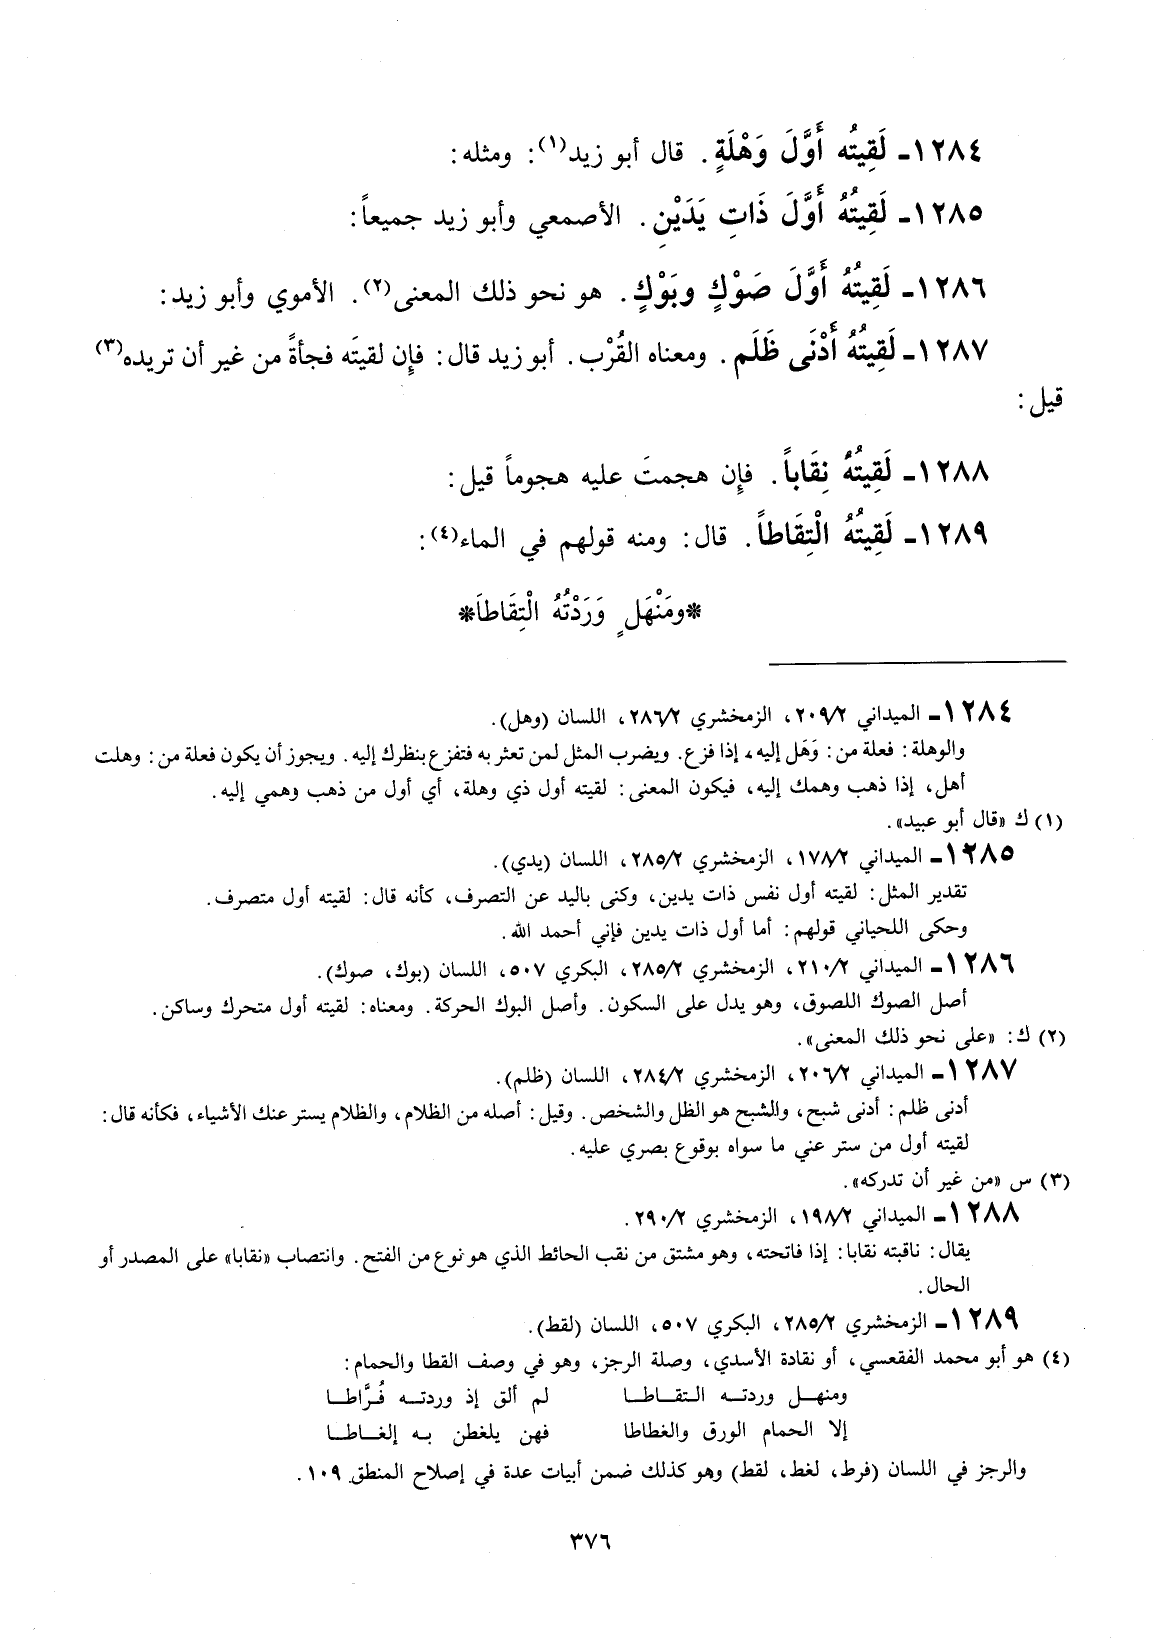 ١٢٨٤ـ لَقِيتُه أَوَّلَ وَهْلَةٍ. قال أبو زيد(١): ومثله:
١٢٨٥ـ لَقِيتُهُ أَوَّلَ ذَاتِ يَدَيْنِ. الأصمعي وأبو زيد جميعاً:
١٢٨٦ـ لَقِيتُهُ أَوَّلَ صَوْكٍ وبَوْكٍ. هو نحو ذلك المعنى(٢). الأموي وأبو زيد:
١٢٨٧ـ لَقِيتُهُ أَدْنَى ظَلَم. ومعناه القُرْب. أبو زيد قال: فإن لقيتَه فجأةً من غير أن تريده(٣)
قيل:
١٢٨٨ـ لَقِيتُهُ نِقَاباً. فإن هجمتَ عليه هجوماً قيل:
١٢٨٩ـ لَقِيتُهُ الْتِقَاطاً. قال: ومنه قولهم في الماء(٤):
*ومَنْهَلٍ وَرَدْتُهُ الْتِقَاطَا*
١٢٨٤ـ الميداني ٢٠٩/٢، الزمخشري ٢٨٦/٢، اللسان (وهل).
والوهلة: فعلة من: وَهَل إليه، إذا فزع. ويضرب المثل لمن تعثر به فتفزع بنظرك إليه. ويجوز أن يكون فعلة من: وهلت
أهل، إذا ذهب وهمك إليه، فيكون المعنى: لقيته أول ذي وهلة، أي أول من ذهب وهمي إليه.
(١) ك «قال أبو عبيد».
١٢٨٥ـ الميداني ١٧٨/٢، الزمخشري ٢٨٥/٢، اللسان (يدي).
تقدير المثل: لقيته أول نفس ذات يدين، وكنى باليد عن التصرف، كأنه قال: لقيته أول متصرف.
وحكى اللحياني قولهم: أما أول ذات يدين فإني أحمد الله.
١٢٨٦ـ الميداني ٢١٠/٢، الزمخشري ٢٨٥/٢، البكري ٥٠٧، اللسان (بوك، صوك).
أصل الصوك اللصوق، وهو يدل على السكون. وأصل البوك الحركة. ومعناه: لقيته أول متحرك وساكن.
(٢) ك: «على نحو ذلك المعنى».
١٢٨٧ـ الميداني ٢٠٦/٢، الزمخشري ٢٨٤/٢، اللسان (ظلم).
أدنى ظلم: أدنى شبح، والشبح هو الظل والشخص. وقيل: أصله من الظلام، والظلام يستر عنك الأشياء، فكأنه قال:
لقيته أول من ستر عني ما سواه بوقوع بصري عليه.
(٣) س «من غير أن تدركه».
١٢٨٨ـ الميداني ١٩٨/٢، الزمخشري ٢٩٠/٢.
يقال: ناقبته نقابا: إذا فاتحته، وهو مشتق من نقب الحائط الذي هو نوع من الفتح. وانتصاب «نقابا» على المصدر أو
الحال.
١٢٨٩ـ الزمخشري ٢٨٥/٢، البكري ٥٠٧، اللسان (لقط).
(٤) هو أبو محمد الفقعسي، أو نقادة الأسدي، وصلة الرجز، وهو في وصف القطا والحمام:
ومنهل وردته التقاطا لم ألق إذ وردته فُرَّاطا
إلا الحمام الورق والغطاطا فهن يلغطن به إلغاطا
والرجز في اللسان (فرط، لغط، لقط) وهو كذلك ضمن أبيات عدة في إصلاح المنطق ١٠٩.
٣٧٦